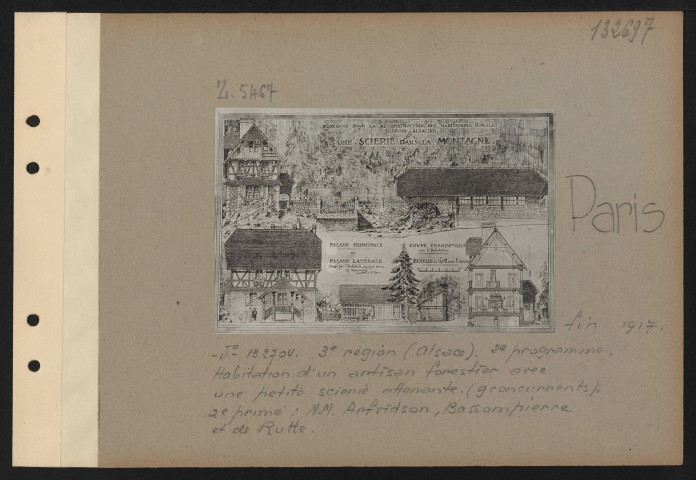 132697
Z. 5467
CONCOURS POUR LA RECONSTRUCTION DES HABITATIONS RURALES
UNE SCIERIE DANS LA MONTAGNE
FAÇADE PRINCIPALE
ET
FAÇADE LATÉRALE
COUPE TRANSVERSALE
Paris
fin 1917.
3e région (Alsace). 2e programme.
Habitation d'un artisan forestier avec
une petite scierie attenante. (9 concurrents).
2e prime : M.M. Arfvidson, Bassompierre
et de Rutté.